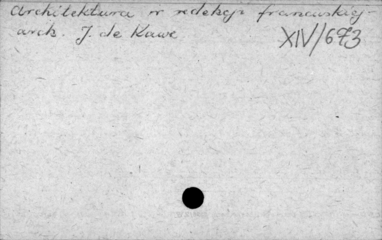 Architektura w redakcji francuskiej -
arch. J. de Kawe
XIV/673